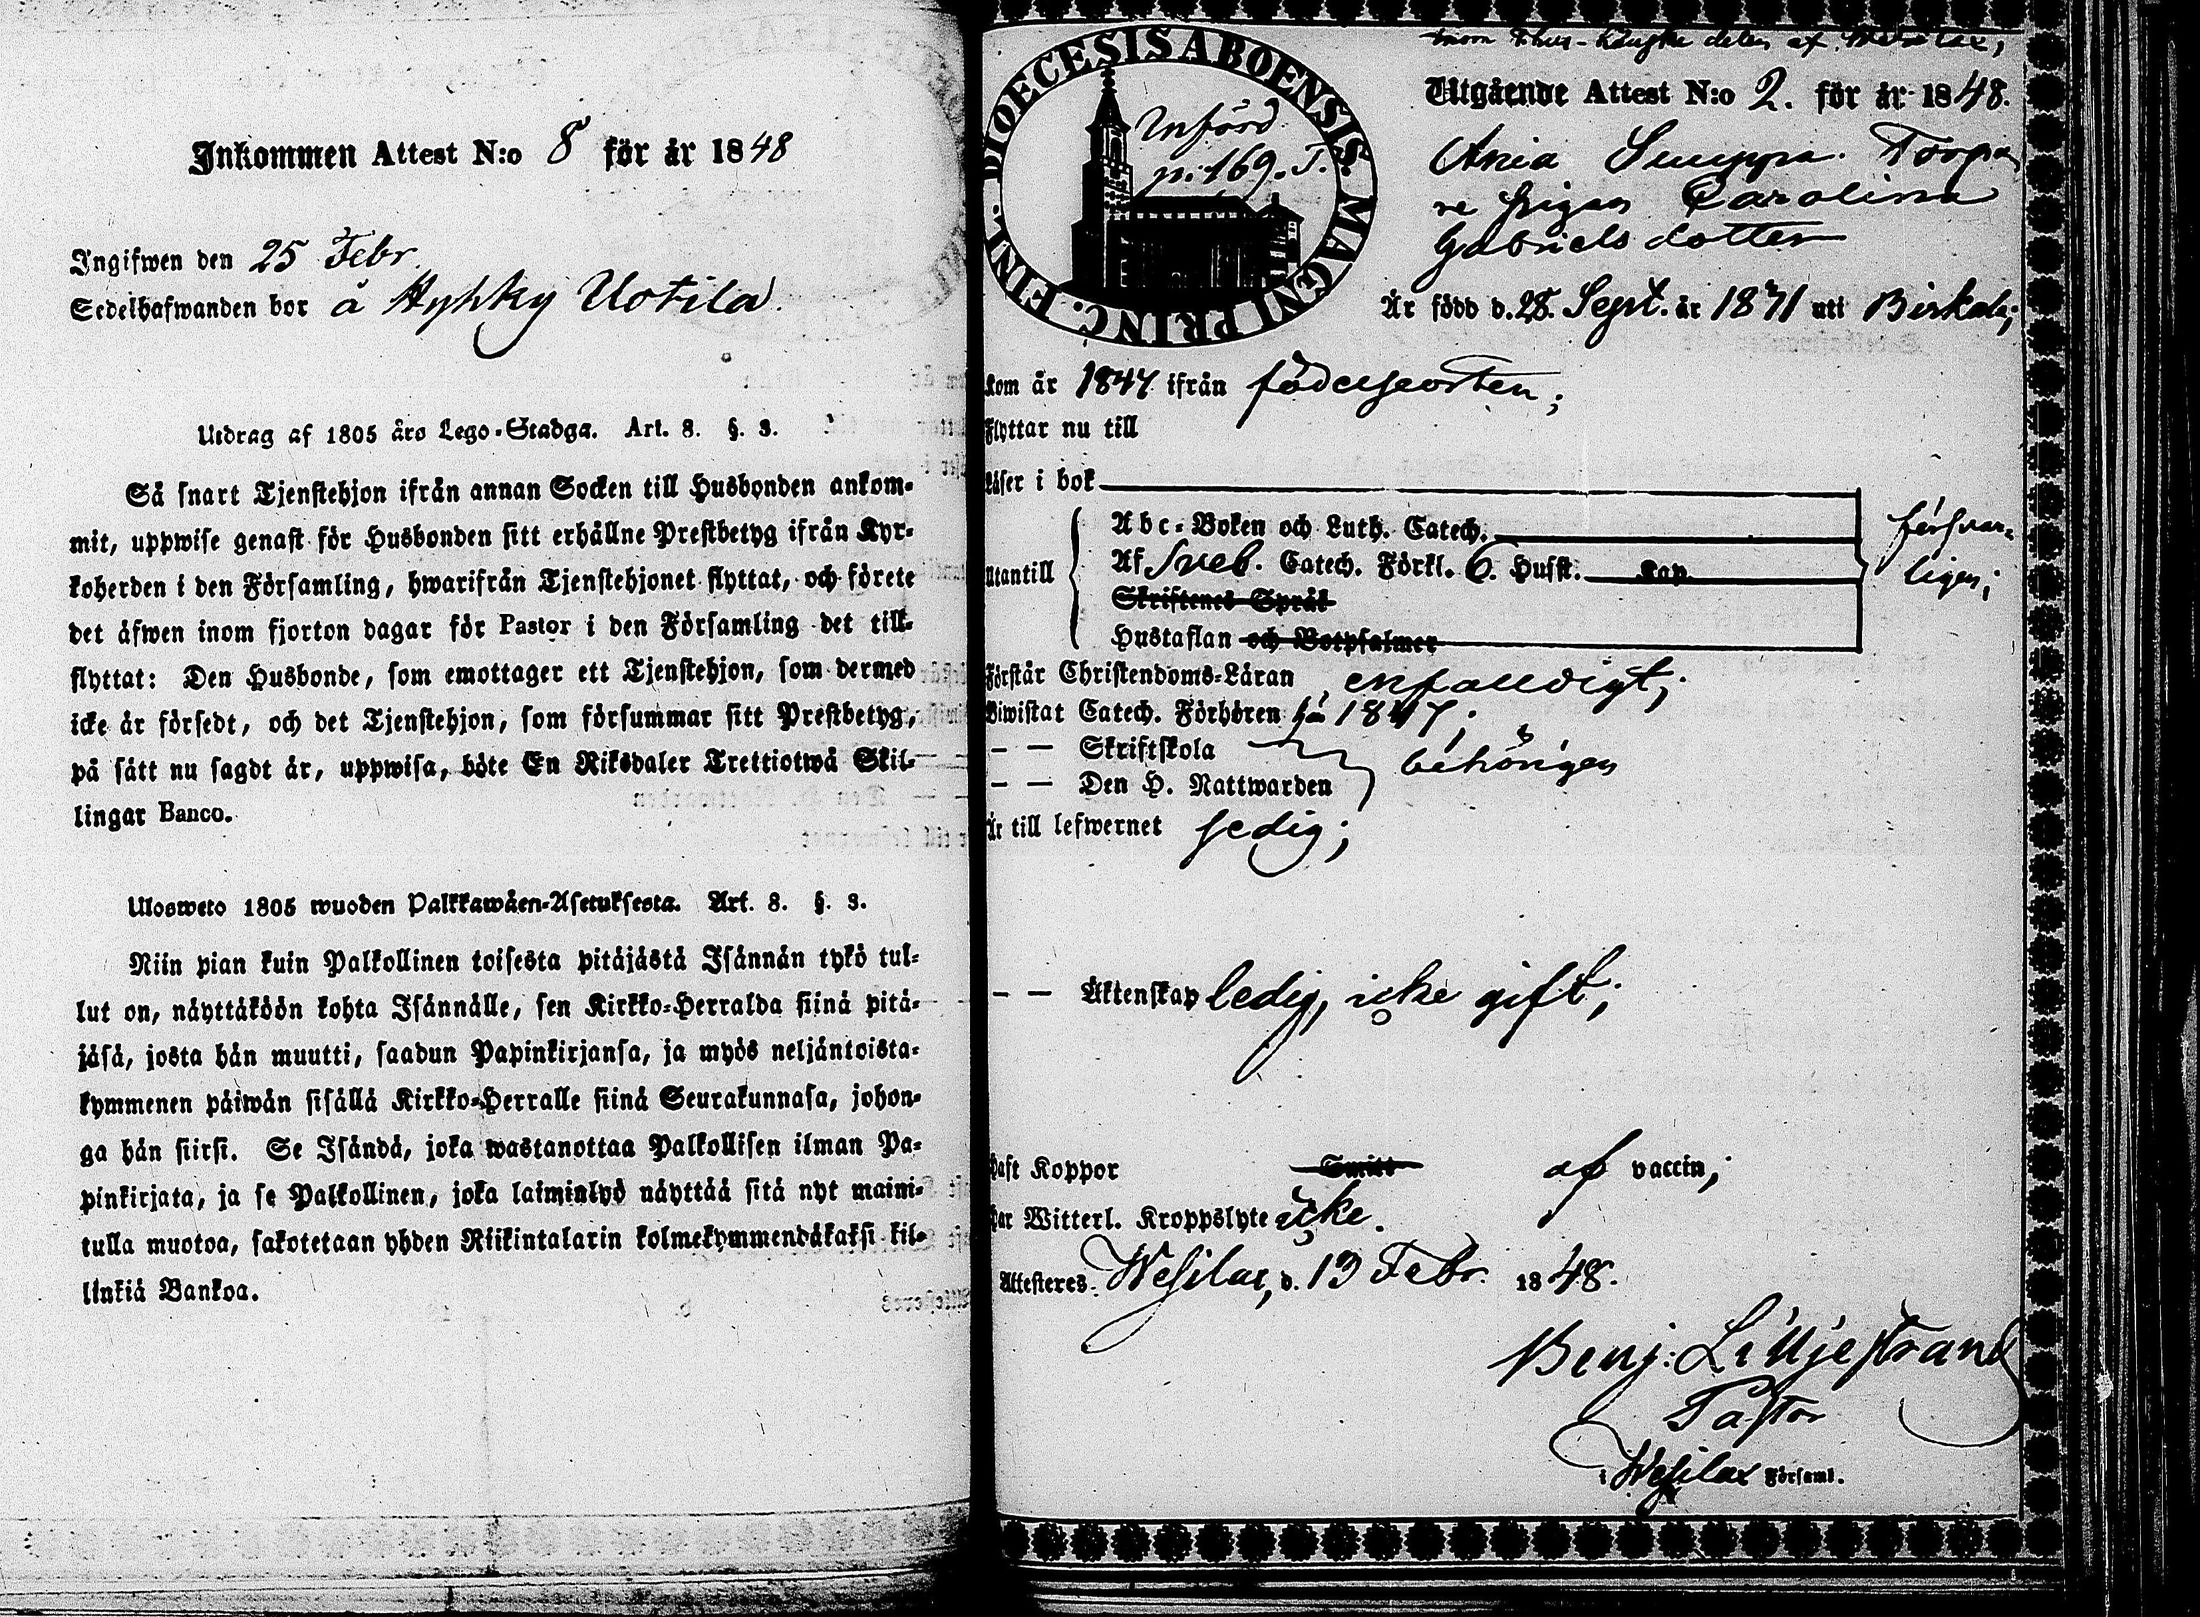 Inkommen Attest N:o 8 för år 1848
Ingifwen den 25 Febr.
Sedelhafwanden bor å Hyhky Uotila.
Utdrag af 1805 års Lego-Stadga. Art. 8. §. 3.
Så snart Tjenstehjon ifrån annan Socken till Husbonden ankom-
mit, uppwise genast för Husbonden sitt erhållne Prestbetyg ifrån Kyr-
koherden i den Församling, hwarifrån Tjenstehjonet flyttat, och förete
det äfwen inom fjorton dagar för Pastor i den Församling det till-
flyttat: Den Husbonde, som emottager ett Tjenstehjon, som dermed
icke är försedt, och det Tjenstehjon, som försummar sitt Prestbetyg,
på sätt nu sagdt är, uppwisa, böte En Riksdaler Trettiotwå Skil-
lingar Banco.
Ulosweto 1805 wuoden Palkkawäen-Asetuksesta. Art. 8. §. 3.
Niin pian kuin Palkollinen toisesta pitäjästä Isännän tykö tul-
lut on, näyttäköön kohta Isännälle, sen Kirkko-Herralda siinä pitä-
jäsä, josta hän muutti, saadun Papinkirjansa, ja myös neljäntoista-
kymmenen päiwän sisällä Kirkko-Herralle siinä Seurakunnasa, johon-
ga hän siirsi. Se Isändä, joka wastanottaa Palkollisen ilman Pa-
pinkirjata, ja se Palkollinen, joka laiminlyö näyttää sitä nyt maini-
tulla muotoa, sakotetaan yhden Riikintalarin kolmekymmendäkaksi kil-
linkiä Bankoa.
FINL. DIOECESIS ABOENSIS. MAGNI PRINC.
Införd
p. 169. T.
Utgående Attest N:o 2. för år 1848.
Torpa
re Carolina
Gabrielsdotter
Är född d. 28. Sept. år 1831 uti Birkala;
kom år 1847 ifrån födelseorten;
Flyttar nu till
Läser i bok
Abc-Boken och Luth. Catech.
försvar-
Utantill Af Sveb. Catech. Förkl. 6. Husst. Kap.
ligen;
Skriftenes Språk
Hustaflan och Botpsalmer
Förstår Christendoms-Läran enfaldigt;
Biwistat Catech. Förhören för 1847;
— — Skriftskola
behörigen
— — Den H. Nattwarden
Är till lefwernet sedig;
— — Äktenskap ledig, icke gift;
Haft Koppor Smitt af vaccin;
Har Witterl. Kroppslyte icke.
Attesteres. Wesilax, d. 13 Febr. 1848.
Benj: Lilljestrand
Pastor
i Wesilax Församl.